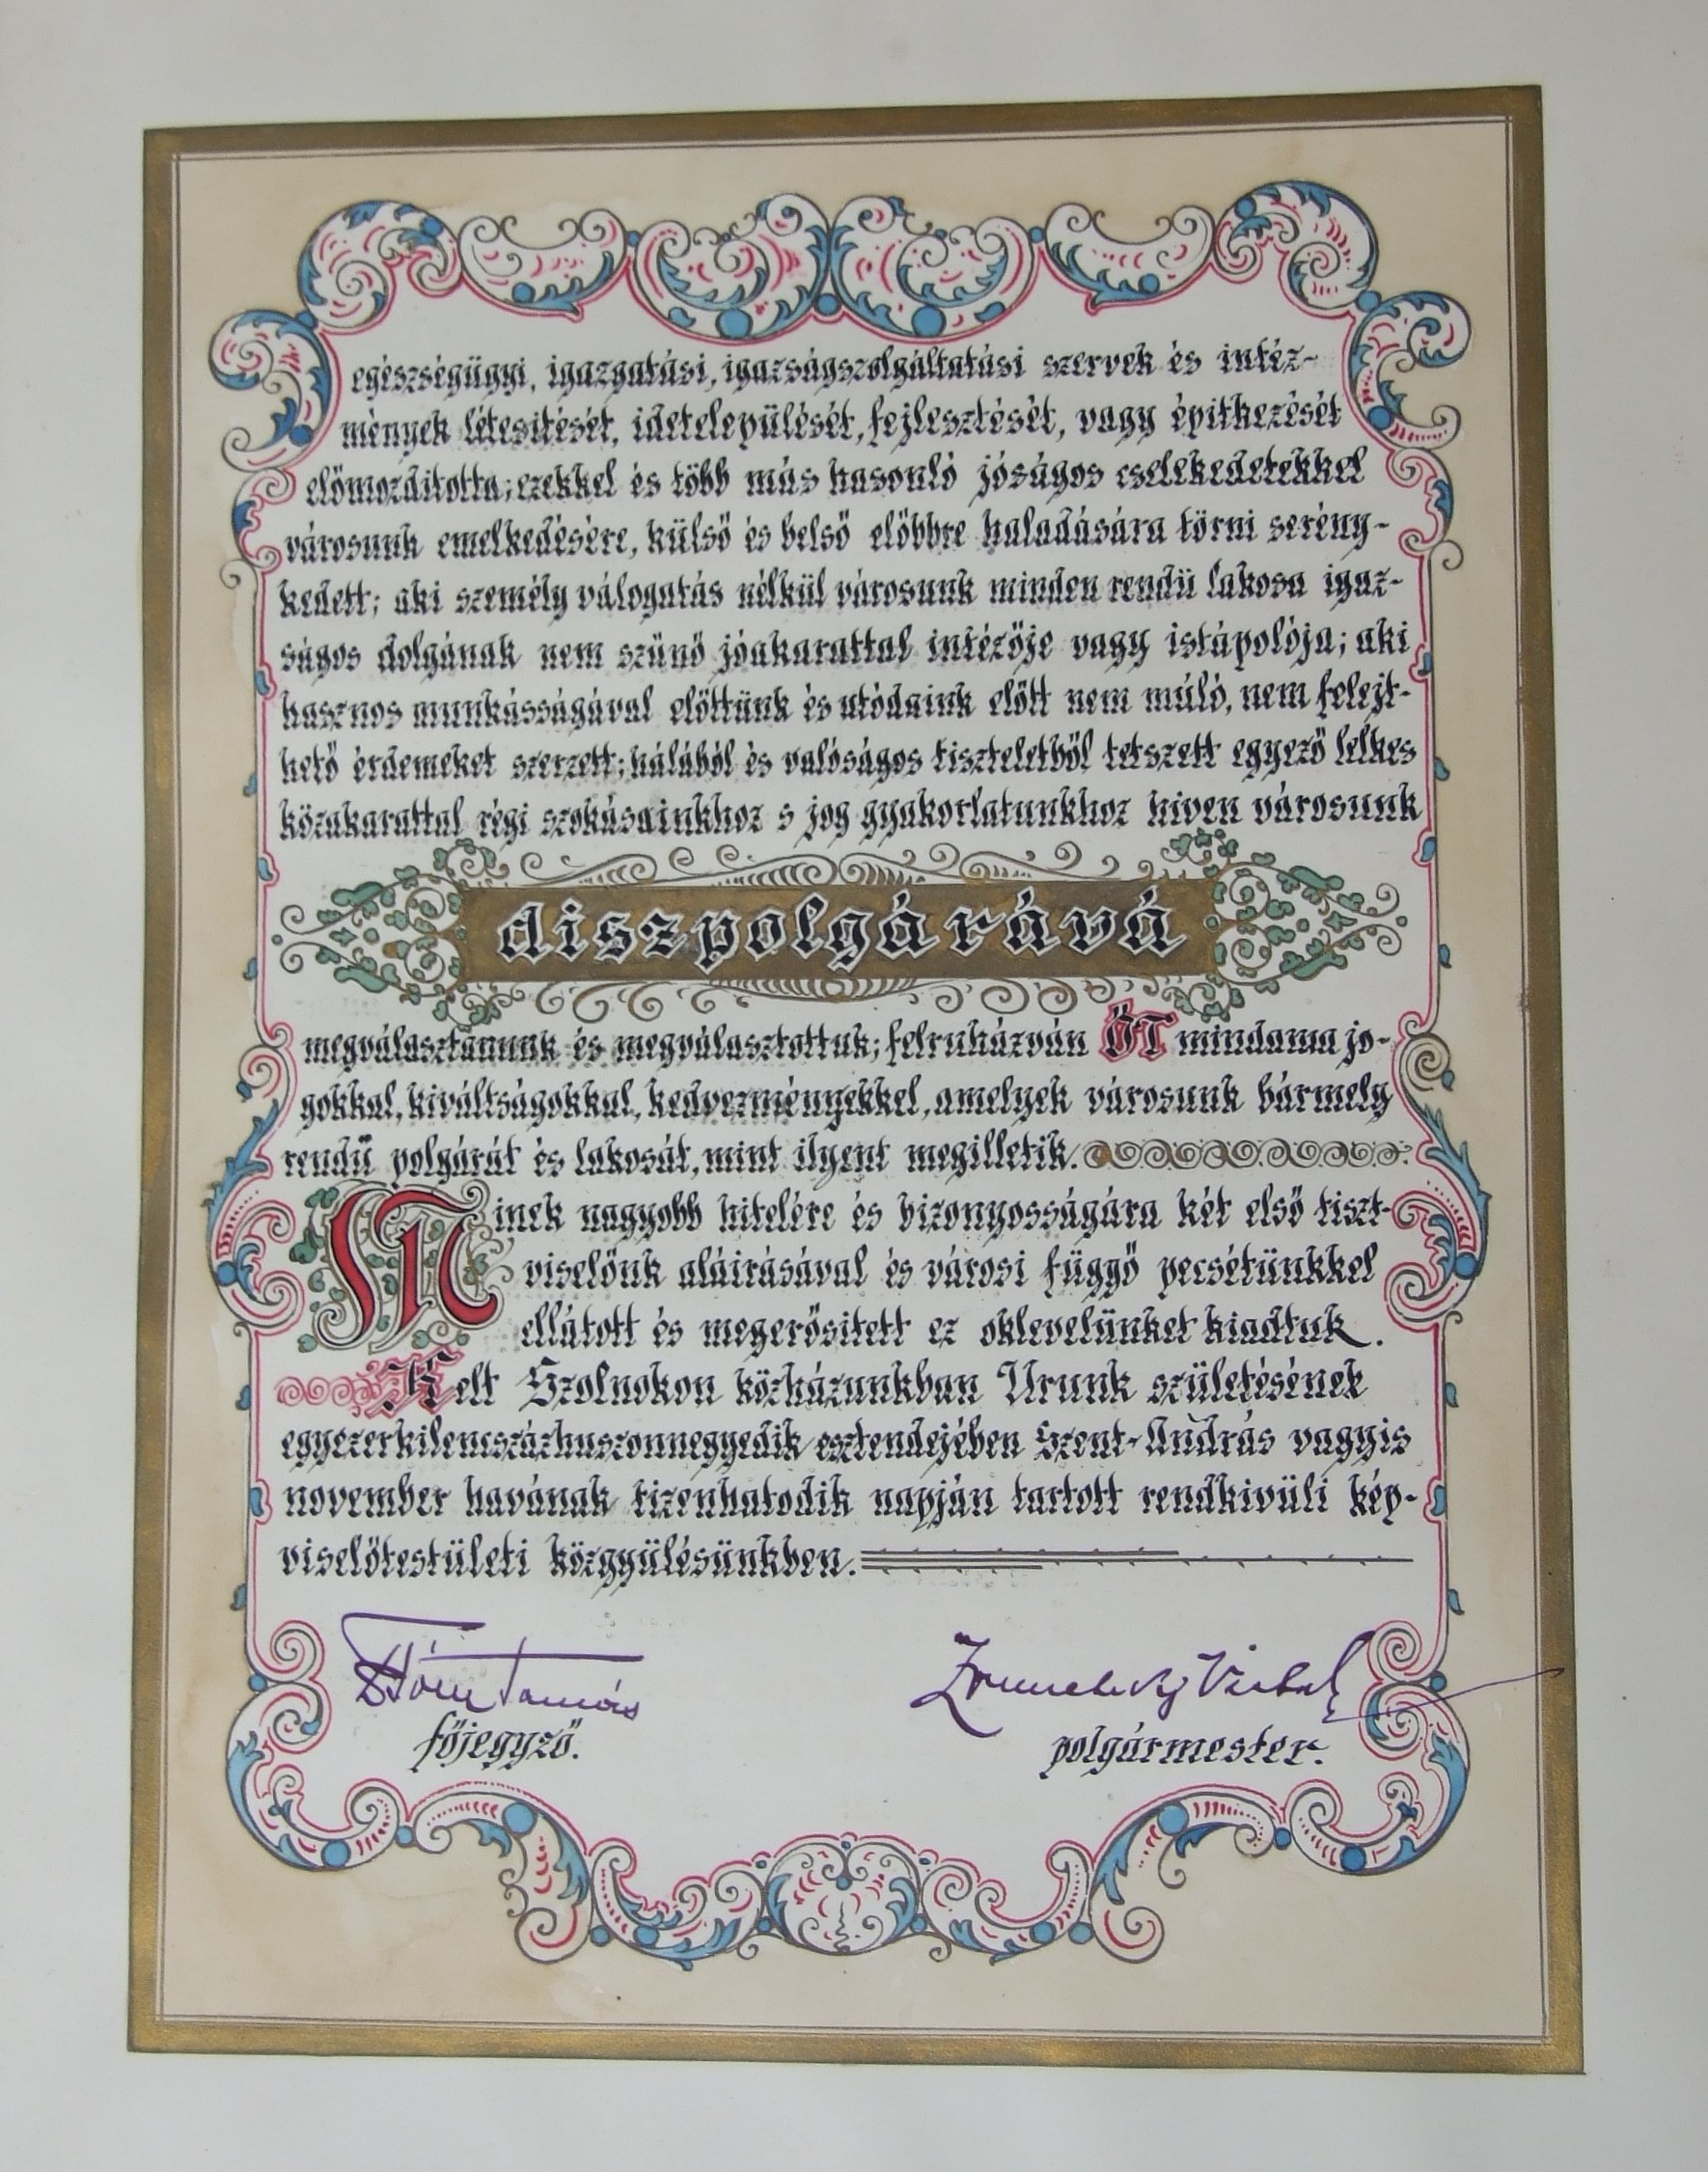 egészségügyi, igazgatási, igazságszolgáltatási szervek és intéz-
mények létesitését, idetelepülését, fejlesztését, vagy épitkezését
előmozditotta; ezekkel és több más hasonló jóságos cselekedetekkel
városunk emelkedésére, külső és belső előbbre haladására törni serény-
kedett; aki személy válogatás nélkül városunk minden rendü lakosa igaz-
ságos dolgának nem szünő jóakarattal intézője vagy istápolója; aki
hasznos munkásságával előttünk és utódaink előtt nem múló, nem felejt-
hető érdemeket szerzett; hálából és valóságos tiszteletből tetszett egyező lelkes
közakarattal régi szokásainkhoz s jog gyakorlatunkhoz hiven városunk
diszpolgárává
megválasztanunk és megválasztottuk; felruházván ŐT mindama jo-
gokkal, kiváltságokkal, kedvezményekkel, amelyek városunk bármely
rendü polgárát és lakosát, mint ilyent megilletik.
Minek nagyobb hitelére és bizonyosságára két első tiszt-
viselőnk aláirásával és városi függő pecsétünkkel
ellátott és megerősitett ez oklevelünket kiadtuk.
Kelt Szolnokon közházunkban Urunk születésének
egyezerkilencszázhuszonnegyedik esztendejében Szent-András vagyis
november havának tizenhatodik napján tartott rendkivüli kép-
viselőtestületi közgyülésünkben.
Tamás
főjegyző.
polgármester.